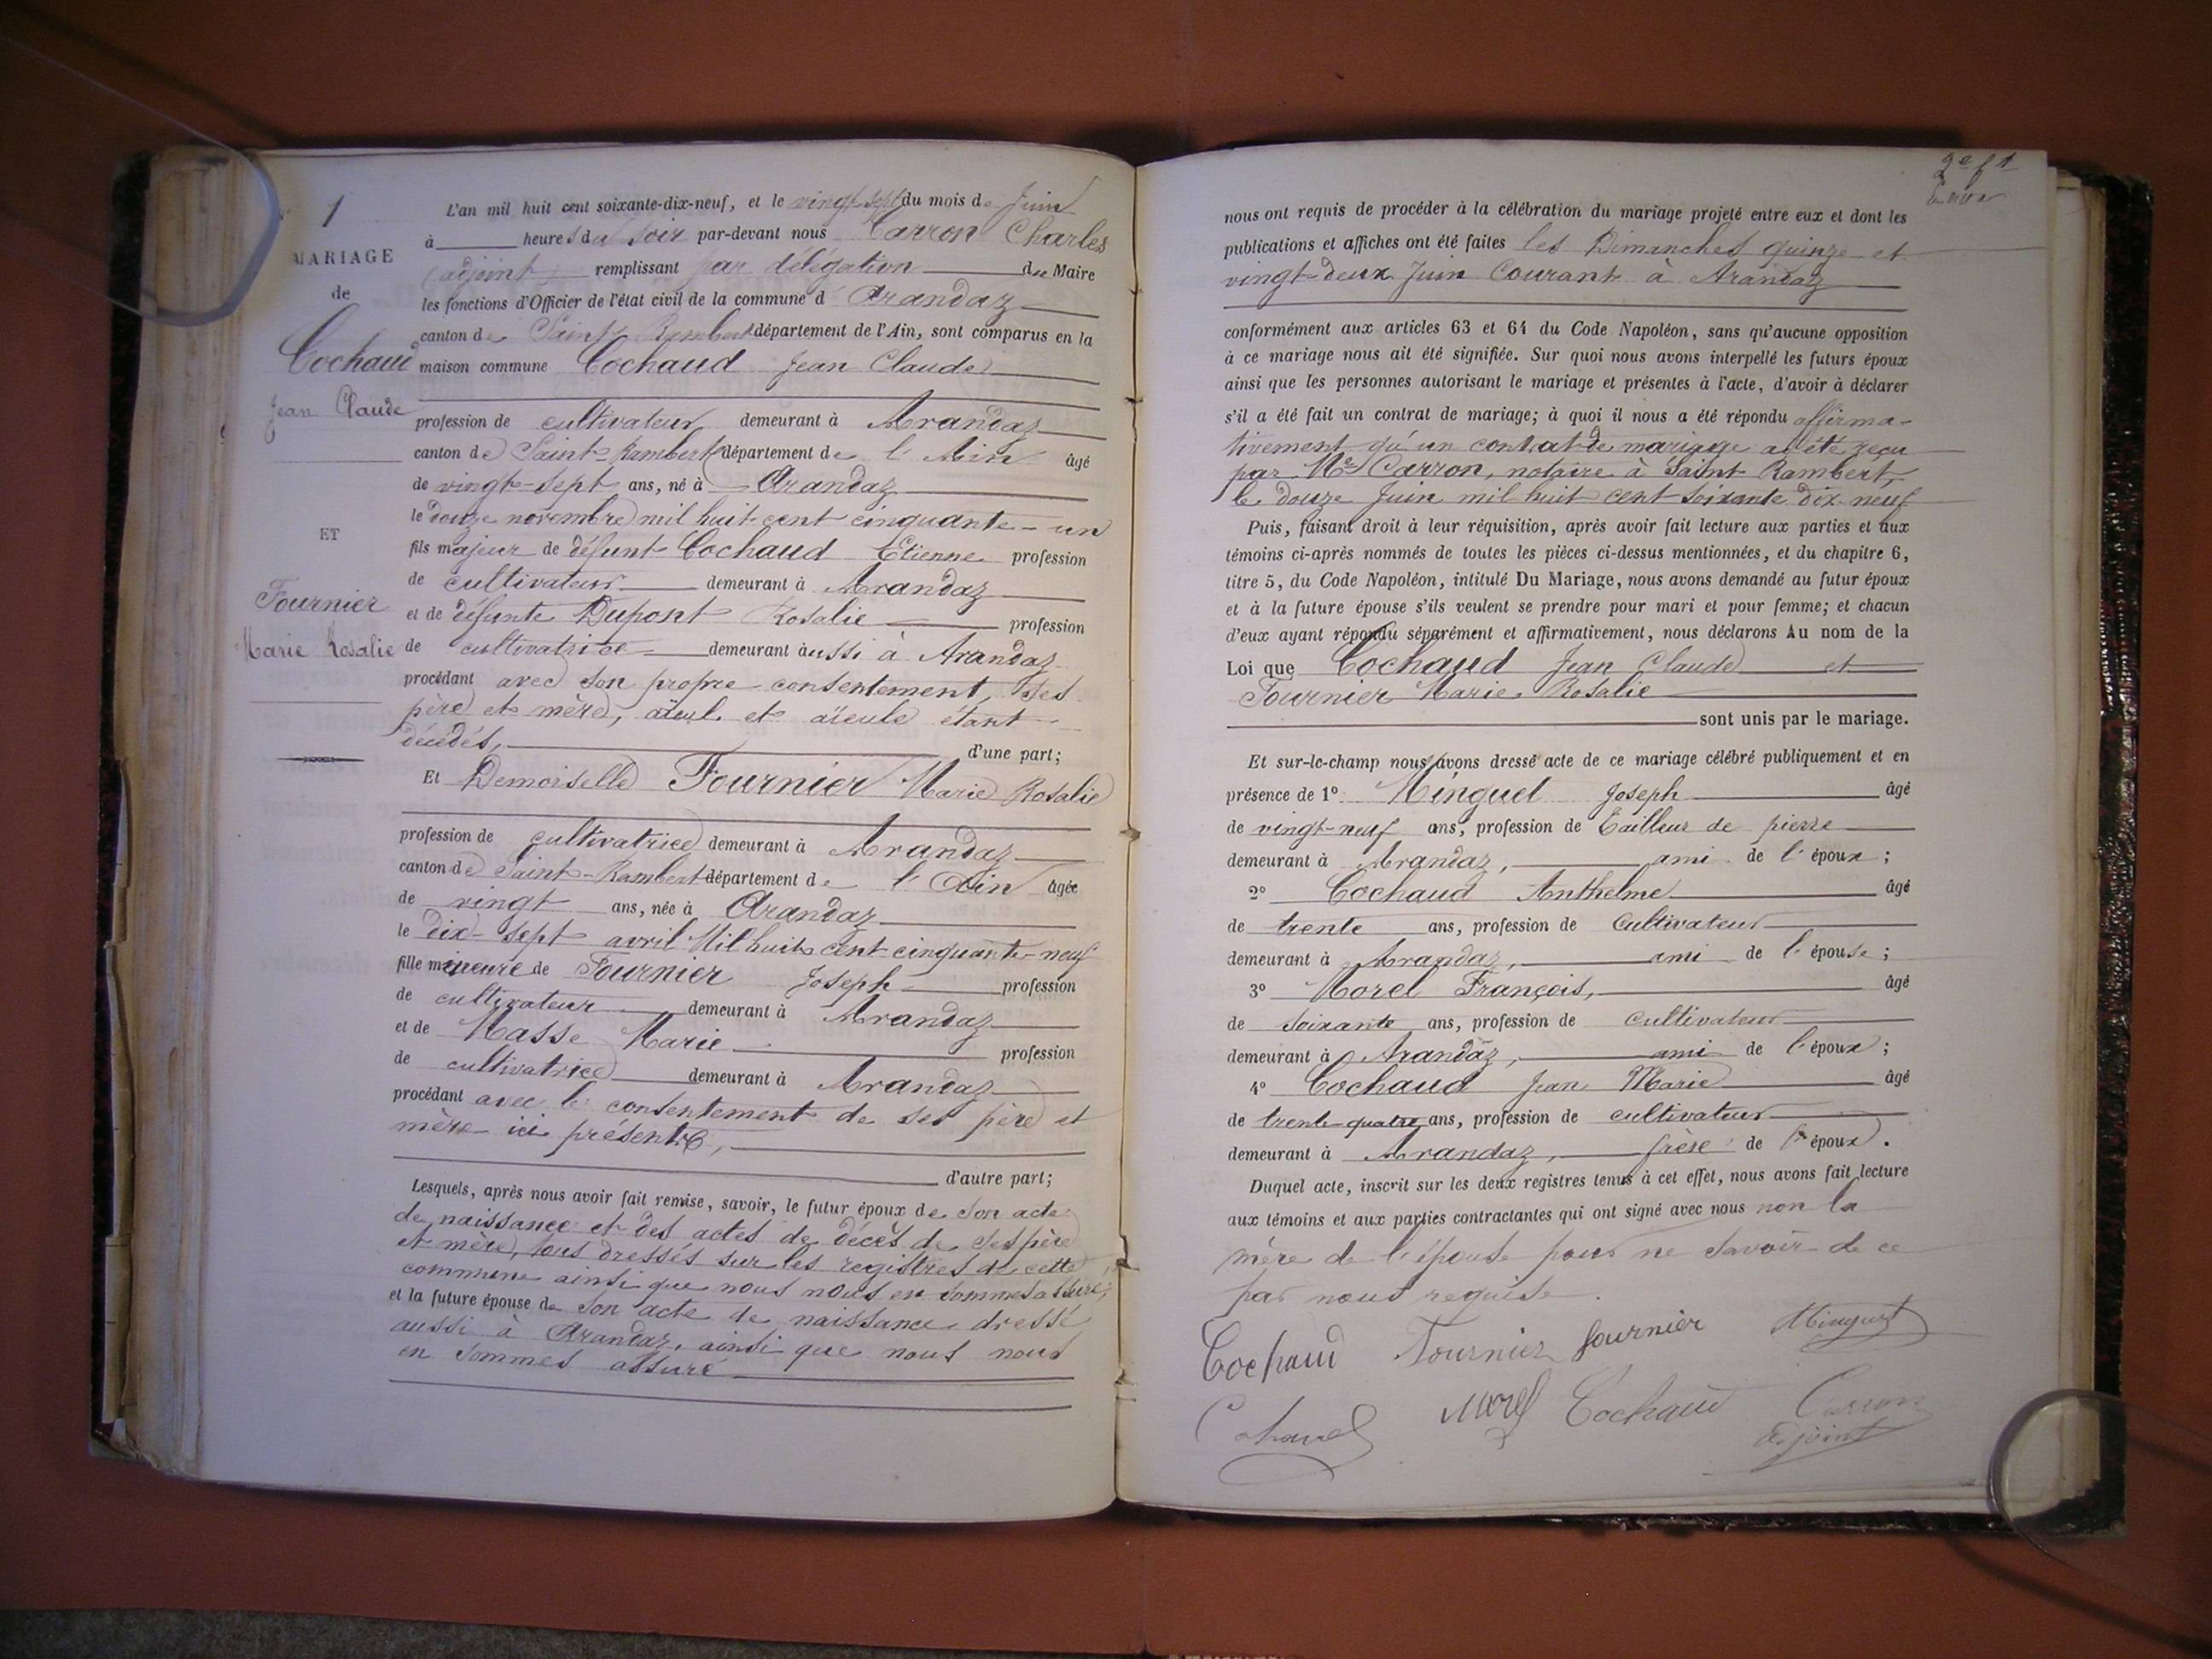 1
MARIAGE
de
Cochaud
Jean Claude
ET
Fournier
Marie Rosalie
L'an mil huit cent soixante-dix-neuf, et le vingt-sept du mois de Juin
à heures du soir par-devant nous Carron Charles
(adjoint) remplissant par délégation du Maire
les fonctions d'Officier de l'état civil de la commune d' Arandaz
canton de Saint-Rambert département de l'Ain, sont comparus en la
maison commune Cochaud Jean Claude
profession de cultivateur demeurant à Arandaz
canton de Saint-Rambert département de l'Ain âgé
de vingt-sept ans, né à Arandaz
le douze novembre mil huit cent cinquante-un
fils majeur de défunt Cochaud Etienne profession
de cultivateur demeurant à Arandaz
et de défunte Dupont Rosalie profession
de cultivatrice demeurant aussi à Arandaz
procédant avec son propre consentement, ses
père et mère, aïeul et aïeule étant
décédés, d'une part;
Et Demoiselle Fournier Marie Rosalie
profession de cultivatrice demeurant à Arandaz
canton de Saint-Rambert département de l'Ain âgée
de vingt ans, née à Arandaz
le dix-sept avril Mil huit cent cinquante-neuf
fille mineure de Fournier Joseph profession
de cultivateur demeurant à Arandaz
et de Masse Marie profession
de cultivatrice demeurant à Arandaz
procédant avec le consentement de ses père et
mère ici présents,
d'autre part;
Lesquels, après nous avoir fait remise, savoir, le futur époux de son acte
de naissance et des actes de décès de ses père
et mère, tous dressés sur les registres de cette
commune ainsi que nous nous en sommes assuré;
et la future épouse de son acte de naissance dressé
aussi à Arandaz, ainsi que nous nous
en sommes assuré
nous ont requis de procéder à la célébration du mariage projeté entre eux et dont les
publications et affiches ont été faites les Dimanches quinze et
vingt-deux Juin Courant à Arandaz
conformément aux articles 63 et 64 du Code Napoléon, sans qu'aucune opposition
à ce mariage nous ait été signifiée. Sur quoi nous avons interpellé les futurs époux
ainsi que les personnes autorisant le mariage et présentes à l'acte, d'avoir à déclarer
s'il a été fait un contrat de mariage; à quoi il nous a été répondu affirma-
tivement qu'un contrat de mariage a été reçu
par Me Carron, notaire à Saint Rambert,
le douze Juin mil huit cent soixante dix-neuf
Puis, faisant droit à leur réquisition, après avoir fait lecture aux parties et aux
témoins ci-après nommés de toutes les pièces ci-dessus mentionnées, et du chapitre 6,
titre 5, du Code Napoléon, intitulé Du Mariage, nous avons demandé au futur époux
et à la future épouse s'ils veulent se prendre pour mari et pour femme; et chacun
d'eux ayant répondu séparément et affirmativement, nous déclarons Au nom de la
Loi que Cochaud Jean Claude et
Fournier Marie Rosalie
sont unis par le mariage.
Et sur-le-champ nous avons dressé acte de ce mariage célébré publiquement et en
présence de 1º Minguet Joseph âgé
de vingt-neuf ans, profession de Tailleur de pierre
demeurant à Arandaz, ami de l'époux;
2º Cochaud Anthelme âgé
de trente ans, profession de Cultivateur
demeurant à Arandaz, ami de l'épouse;
3º Morel François, âgé
de soixante ans, profession de Cultivateur
demeurant à Arandaz, ami de l'époux;
4º Cochaud Jean Marie âgé
de trente-quatre ans, profession de cultivateur
demeurant à Arandaz, frère de l'époux.
Duquel acte, inscrit sur les deux registres tenus à cet effet, nous avons fait lecture
aux témoins et aux parties contractantes qui ont signé avec nous non la
mère de l'épouse pour ne savoir de ce
par nous requise.
Cochaud Fournier fournier Minguet
Morel Cochaud Carron
adjoint